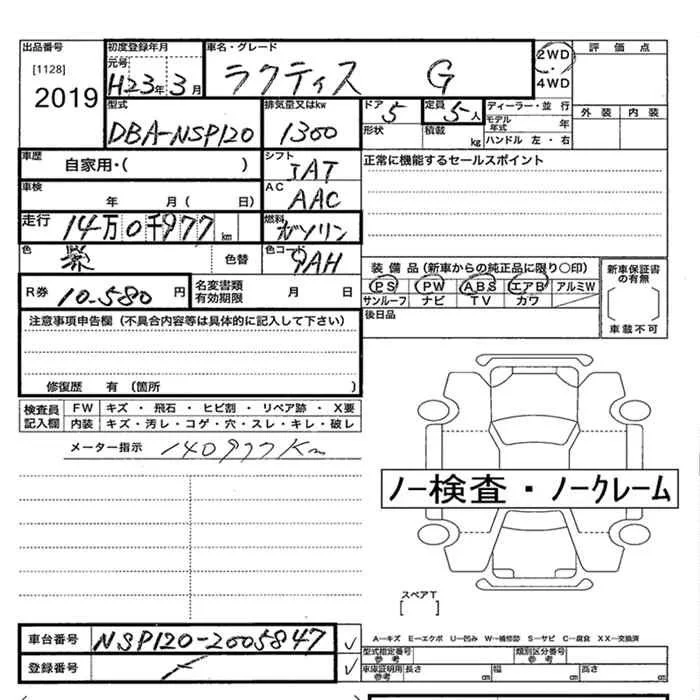 出品番号 初度登録年月 車名・グレード 2WD 評価点
[1128] 元号 ・
2019 H23年3月 ラクティス G 4WD
型式 排気量又はkw ドア 定員 ディーラー・並行 外装 内装
DBA-NSP120 1300 5 5人 モデル年式 年
形状 積載 kg ハンドル 左・右
車歴 自家用・( ) シフト 正常に機能するセールスポイント
IAT
車検 年 月( 日) AC AAC
走行 14万0千977km 燃料 ガソリン
色 紫 色替 色コード 9AH 装備品(新車からの純正品に限り○印) 新車保証書の有無
PS PW ABS エアB アルミW
R券 10-580円 名変書類有効期限 月 日 サンルーフ ナビ TV カワ [ ]
後日品 車載不可
注意事項申告欄(不具合内容等は具体的に記入して下さい)
修復歴 有(箇所 )
検査員記入欄 FW キズ・飛石・ヒビ割・リペア跡・X要
内装 キズ・汚レ・コゲ・穴・スレ・キレ・破レ
メーター指示 140977Km
ノー検査・ノークレーム
スペアT
[ ]
車台番号 NSP120-2005847 ✓
A―キズ E―エクボ U―凹み W―補修跡 S―サビ C―腐食 XX―交換済
型式指定番号 参考 類別区分番号 参考
登録番号 ✓ 車庫証明用参考 長さ cm 幅 cm 高さ cm